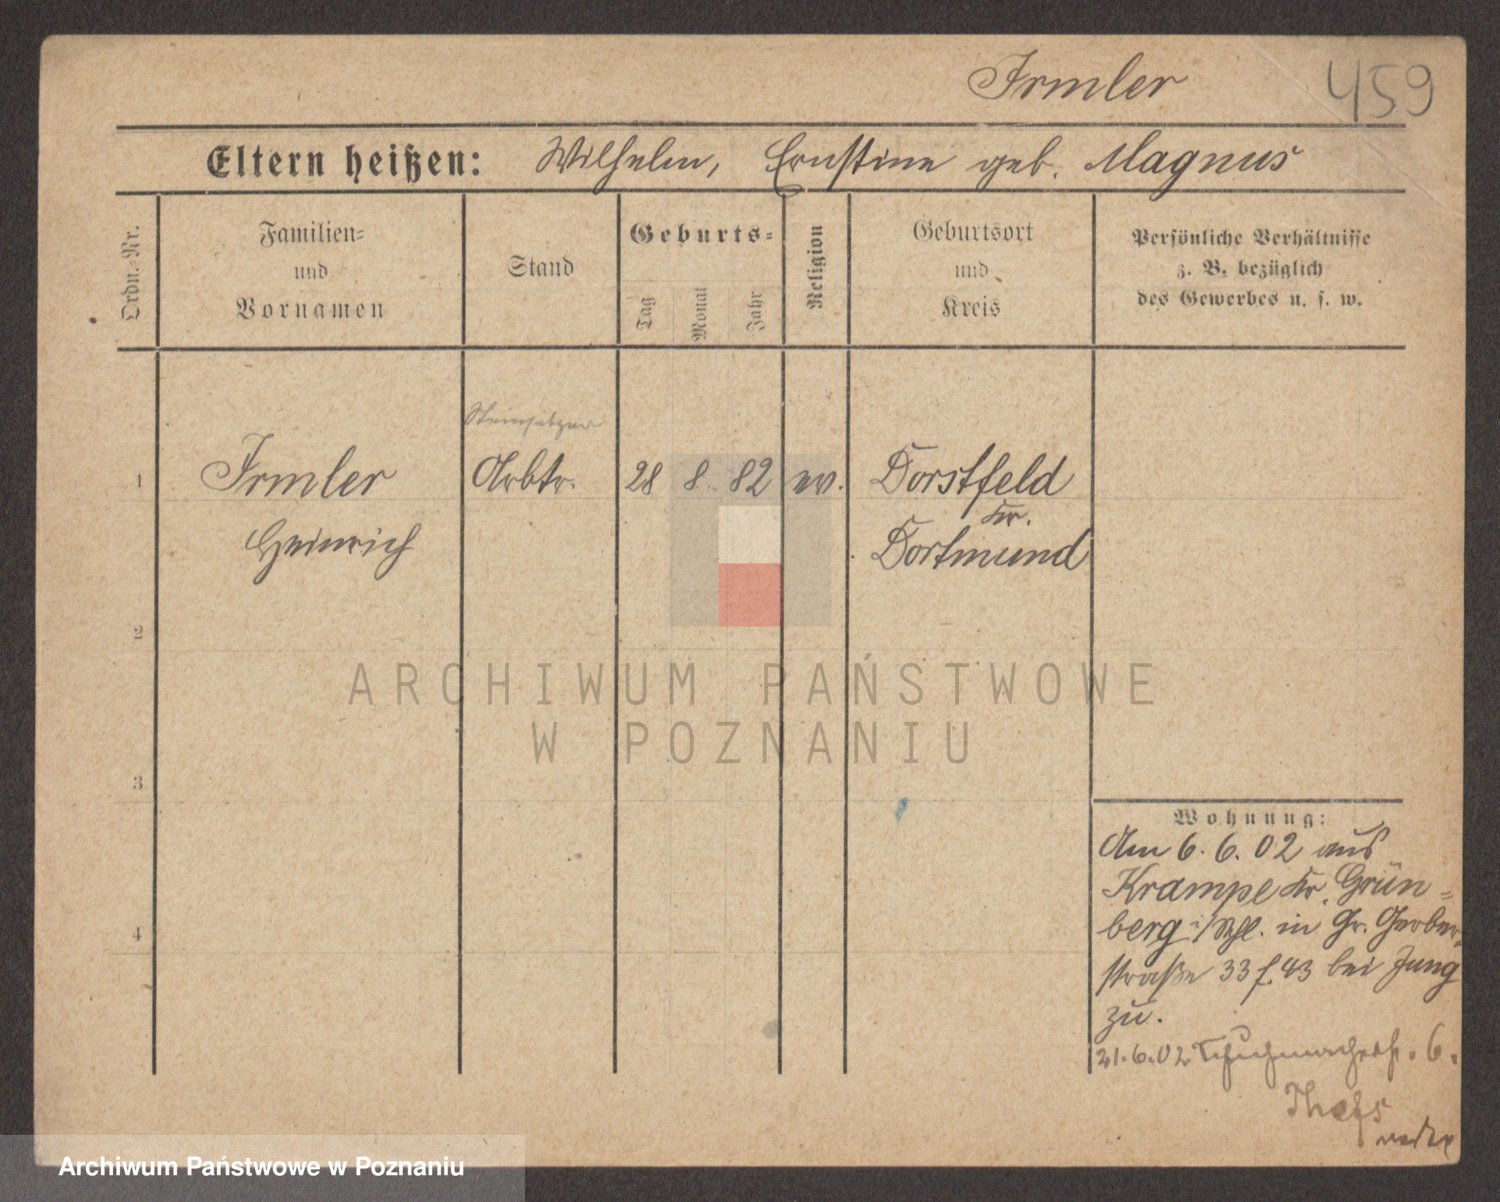 Irmler 459
Eltern heißen: Wilhelm, Ernstine geb. Magnus
Ordn.-Nr.
Familien-
und
Vornamen
Stand
Geburts-
Tag
Monat
Jahr
Religion
Geburtsort
und
Kreis
Persönliche Verhältnisse
z. B. bezüglich
des Gewerbes u. s. w.
Steinsetzer
1 Irmler Arbtr. 28 8. 82 ev. Dorstfeld
Kr.
Heinrich Dortmund
2
ARCHIWUM PAŃSTWOWE
W POZNANIU
3
Wohnung:
Am 6. 6. 02 aus
Krampe Kr. Grün-
4
berg i/Schl. in Gr. Gerber-
straße 33 f. 43 bei Jung
zu.
21.6.02 Schuhmacherstr. 6.
Archiwum Państwowe w Poznaniu